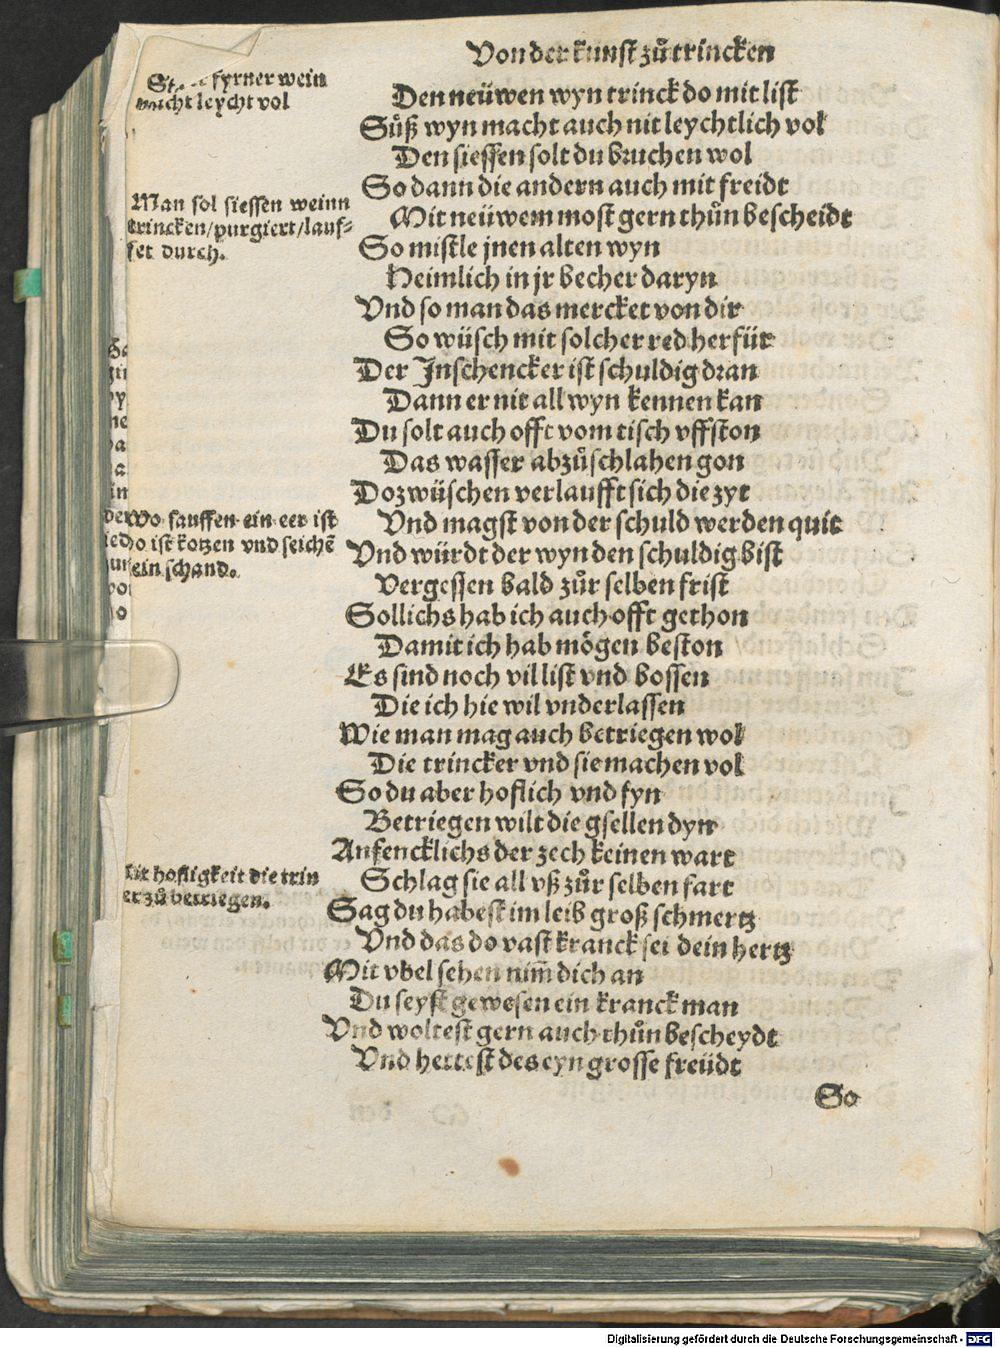 Von der kunst zuͦ trincken
fyrner wein
macht leycht vol
Den neüwen wyn trinck do mit list
Suͤß wyn macht auch nit leychtlich vol
Den siessen solt du bruchen wol
So dann die andern auch mit freidt
Man sol siessen weinn
trincken/purgiert/lauf-
fet durch.
Mit neüwem most gern thuͦn bescheidt
So mistle jnen alten wyn
Heimlich in jr becher daryn
Vnd so man das mercket von dir
So wüsch mit solcher red herfür
Der Jnschencker ist schuldig dran
Dann er nit all wyn kennen kan
Du solt auch offt vom tisch vffston
Das wasser abzuͦschlahen gon
Dozwüschen verlaufft sich die zyt
Wo sauffen ein eer ist
do ist kotzen vnd seichē
kein schand.
Vnd magst von der schuld werden quit
Vnd würdt der wyn den schuldig bist
Vergessen bald zuͦr selben frist
Sollichs hab ich auch offt gethon
Damit ich hab mögen beston
Es sind noch vil list vnd bossen
Die ich hie wil vnderlassen
Wie man mag auch betriegen wol
Die trincker vnd sie machen vol
So du aber hoflich vnd fyn
Betriegen wilt die gsellen dyn
Anfencklichs der zech keinen wart
Mit hofligkeit die trin
er zuͦ betriegen.
Schlag sie all vß zuͦr selben fart
Sag du habest im leib groß schmertz
Vnd das do vast kranck sei dein hertz
Mit vbel sehen nim̄ dich an
Du seyst gewesen ein kranck man
Vnd woltest gern auch thuͦn bescheydt
Vnd hettest des eyn grosse freüdt
So
Digitalisierung gefördert durch die Deutsche Forschungsgemeinschaft - DFG